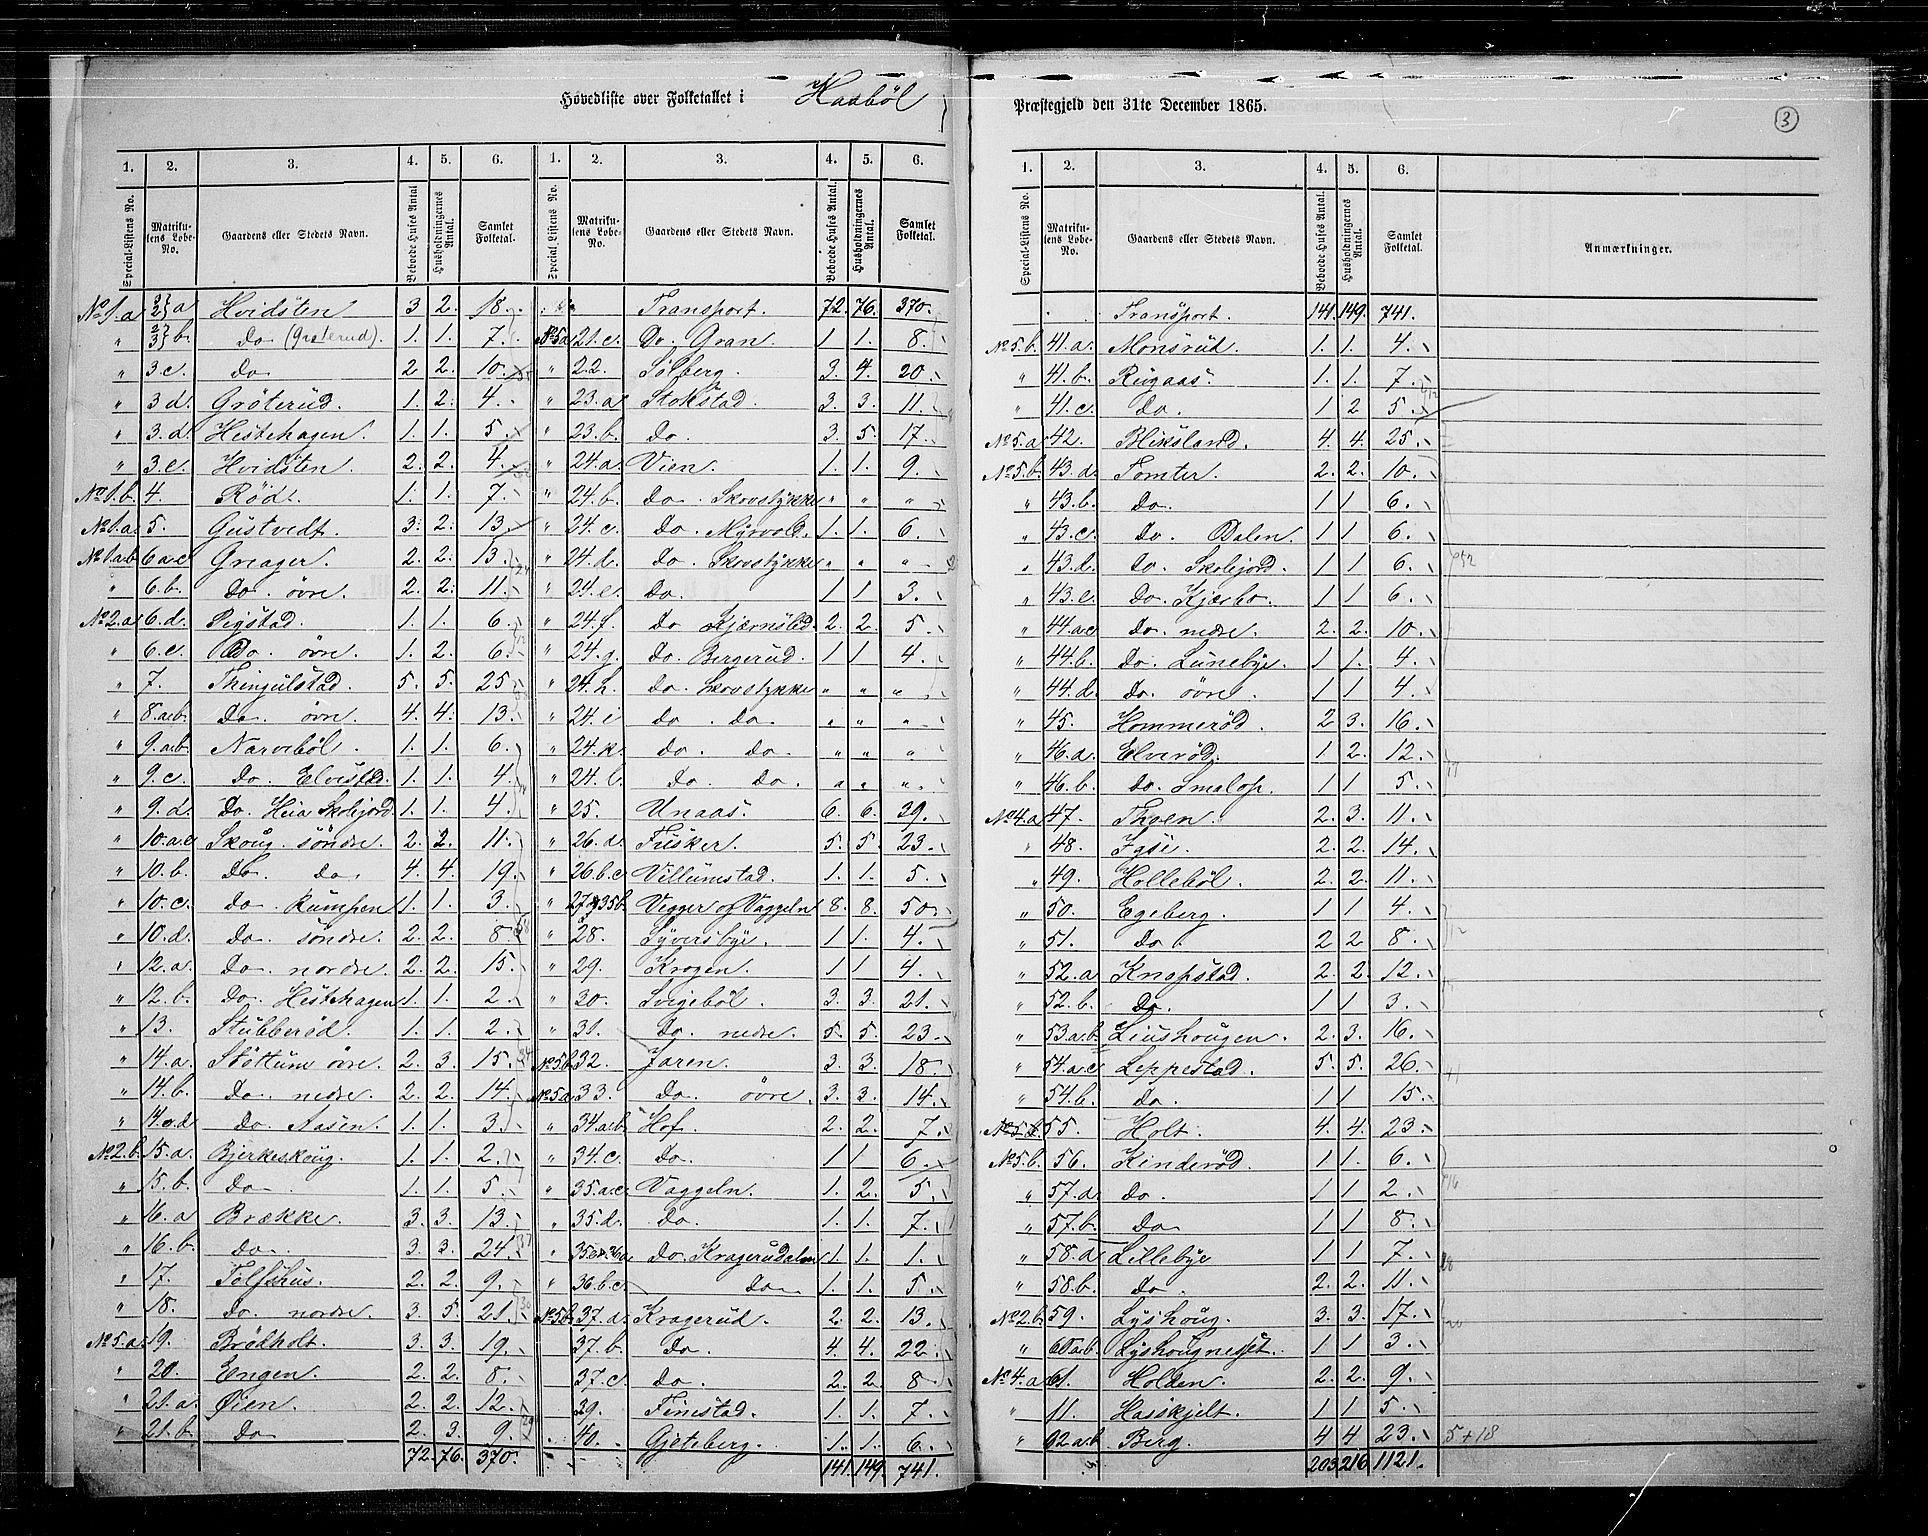 Hovedliste over Folketallet i Haabøl
1. 2. 3. 4. 5. 6. 1. 2. 3. 4. 5. 6.
Special-Listens No. Matrikulens Løbe-No. Gaardens eller Stedets Navn. Beboede Huses Antal Husholdningernes Antal. Samlet Folketal. Special Listens No. Matrikulens Løbe-No. Gaardens eller Stedets Navn. Beboede Huses Antal. Husholdningernes Antal. Samlet Folketal.
No 1.a a Hvidsten 3 2. 18. Transport. 72. 76. 370.
" b. Do (Grøterud). 1. 1. 7. No 5a 21.c. Do. Gran. 1 1. 8.
" 3.c. Do 2 2. 10. " 22. Solberg. 3. 4. 20.
" 3 d. Grøterud. 1. 2. 4. " 23.a Stokstad. 3. 3. 11.
" 3.d. Hestehagen. 1. 1. 5. " 23.b. Do. 3. 5. 17.
" 3.e. Hvidsten. 2. 2. 4. " 24.a. Vien. 1. 1. 9.
No 1.b. 4. Rød. 1. 1. 7. " 24.b. Do. Skovstykke " " "
No 1.a. 5. Gustvedt. 3. 2. 13. " 24.c. Do. Myrvold. 1. 1. 6.
No 1.ab 6 a c Greager. 2. 2. 13. " 24.d. do. Skovstykke " " "
" 6.b. Do. øvre. 2. 2. 11. " 24.e. Do. 1 1 3.
No 2.a. 6.d. Sigstad. 1. 1. 6. " 24.f. Do Kjærnslid. 2. 2. 5.
" 6.e. Do. øvre. 1. 2. 6. " 24.g. Do. Bergerud. 1 1 4.
" 7. Thingulstad. 5. 5. 25. " 24.h. Do. Skovstykke " " "
" 8.a.b. Do. øvre. 4. 4. 13. " 24.i Do. Do. " " "
" 9.a.b. Narvebøl. 1. 1. 6. " 24.k. Do. Do. " " "
" 9.c. Do. Elvestad. 1. 1. 4. " 24.l. Do. Do. " " "
" 9.d. Do. Heia Skolejord 1. 1. 4. " 25. Unaas. 6. 6. 29.
" 10.a.e Skoug. søndre. 2. 2. 11. " 26.a. Fusker. 5. 5. 23.
" 10.b. Do. do. 4. 4. 19. " 26.b.c Villumstad. 1. 1. 5.
" 10.c. Do. Rumpen 1. 1. 3. " 27 35b. Vegger og Vaggeln 8. 8. 50.
" 10.d. Do. søndre. 2. 2. 8. " 28. Syversbye. 1 1. 4.
" 12.a. Do. nordre. 2. 2. 15. " 29. Krogen. 1 1 4.
" 12.b. Do. Hestehagen 1. 1. 2. " 30. Svigebøl. 3. 3. 21.
" 13. Stubberød. 1. 1. 2. " 31. Do. nedre. 5. 5. 23.
" 14.a. Støttum øvre. 2. 3. 15. No 5.b. 32. Jaren. 3. 3. 18.
" 14.b. Do. nedre. 2. 2. 14. No 5.a 33. Do. øvre. 3. 3. 14.
" 14.c.d Do. Aasen. 1. 1. 3. " 34.a.b. Hof. 2. 2. 7.
No 2.b. 15.a. Bjerkeskoug. 1. 1. 2. " 34.c. Do. 1 1 6.
" 15.b. Do 1. 1. 5. " 35.a.c. Vaggeln. 1. 2. 5.
" 16.a Brække. 3. 3. 13. " 35.d. Do. 1. 1. 7.
" 16.b. Do. 3. 3. 24. " Do. Kragerudalen 1. 1. 1.
" 17. Tolfshus. 2. 2. 9. " 36.b.c. Do 1. 1. 5.
" 18. Do. nordre 3. 5. 21. No 5b. 37.a. Kragerud. 2. 2. 13.
No 5.a. 19. Brødholt. 3. 3. 19. 37.b. Do. 4. 4. 22.
" 20. Engen. 2. 2. 8. 37.c. Do. 2. 2. 8
" 21.a. Øien. 2. 2. 12. 39. Finstad. 1. 1. 7.
" 21.b. Do 2. 3. 9. 40. Gjeteberg. 1. 1. 6.
72. 76. 370. 141. 149. 741.
Præstegjeld den 31te December 1865.
3
1. 2. 3. 4. 5. 6.
Special-Listens No. Matrikulens Løbe-No. Gaardens eller Stedets Navn. Beboede Huses Antal. Husholdningernes Antal. Samlet Folketal Anmærkninger.
Transport. 141. 149. 741.
No 5.b. 41.a. Monsrud. 1. 1. 4.
" 41.b. Rugaas. 1. 1. 7.
" 41.c. Do. 1 2 5.
No 5.a 42. Bliksland. 4. 4. 25.
No 5.b. 43.a. Tomter. 2. 2. 10.
" 43.b. Do. 1 1 6.
" 43.c. Do. Dalen. 1 1 6.
" 43.d. Do. Skolejord. 1 1 6.
" 43.e. Do. Kjærbo. 1 1 6.
" 44.a.c Do. nedre. 2. 2. 10.
" 44.b. Do. Lunebye. 1 1. 4.
" 44.d. Do. øvre. 1 1 4.
" 45. Hommerød. 2 3. 16.
" 46.a. Elverød. 1 2. 12.
" 46.b. Do. Smalop. 1 1 5.
No 4.a 47. Thoen. 2. 3. 11.
" 48. Igsi. 2. 2. 14.
" 49. Hollebøl. 2. 2. 11.
" 50. Egeberg. 1 1 4.
" 51. Do. 2 2 8.
" 52.a Knapstad. 2. 2. 12.
" 52.b. Do. 1 1 3.
" 53.a.b. Liushougen. 2. 3. 16.
" 54.a.c Leppestad. 5. 5. 26.
" 54.b. Do. 1 1 15.
55. Holt. 4. 4. 23.
No 5.b. 56. Kinderød. 1 1. 6.
" 57.a. Do. 1 1 2.
" 57.b. Do 1 1 8.
" 58.a Lillebye 1 1 7.
" 58.b. Do. 2. 2. 11.
No 2.b. 59. Lyshoug. 3. 3. 17.
" 60a.b. Lyshougnesset. 1 1 3.
No 4.a 61. Holden. 2. 2. 9.
" 11. Haskjelt. 1 1 5.
" 62 a.b. Berg. 4 4 23. 5 + 18
203 216 1121.